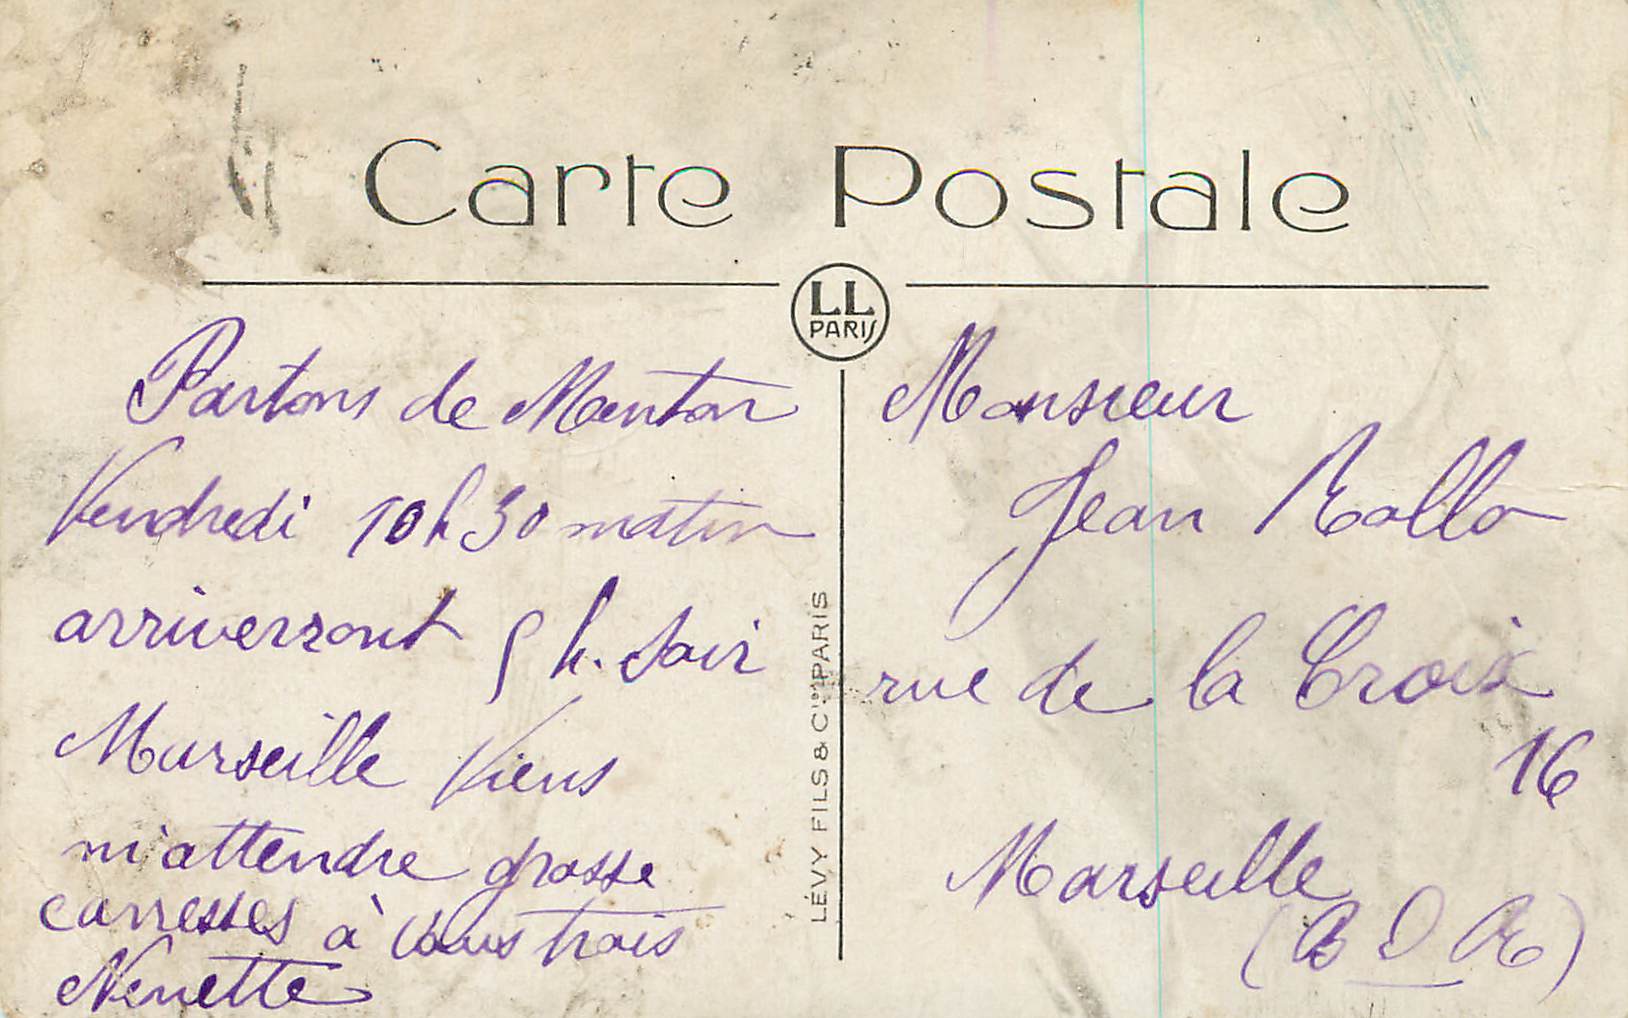 Carte Postale
LL
PARIS
Partons de Menton
Vendredi 10h30 matin
arriverront 5 h. soir
Marseille Viens
m'attendre grosse
carresses à vous trois
Nenette
LÉVY FILS & Cie PARIS
Monsieur
Jean Rollo
rue de la Croix
16
Marseille
(B D R)